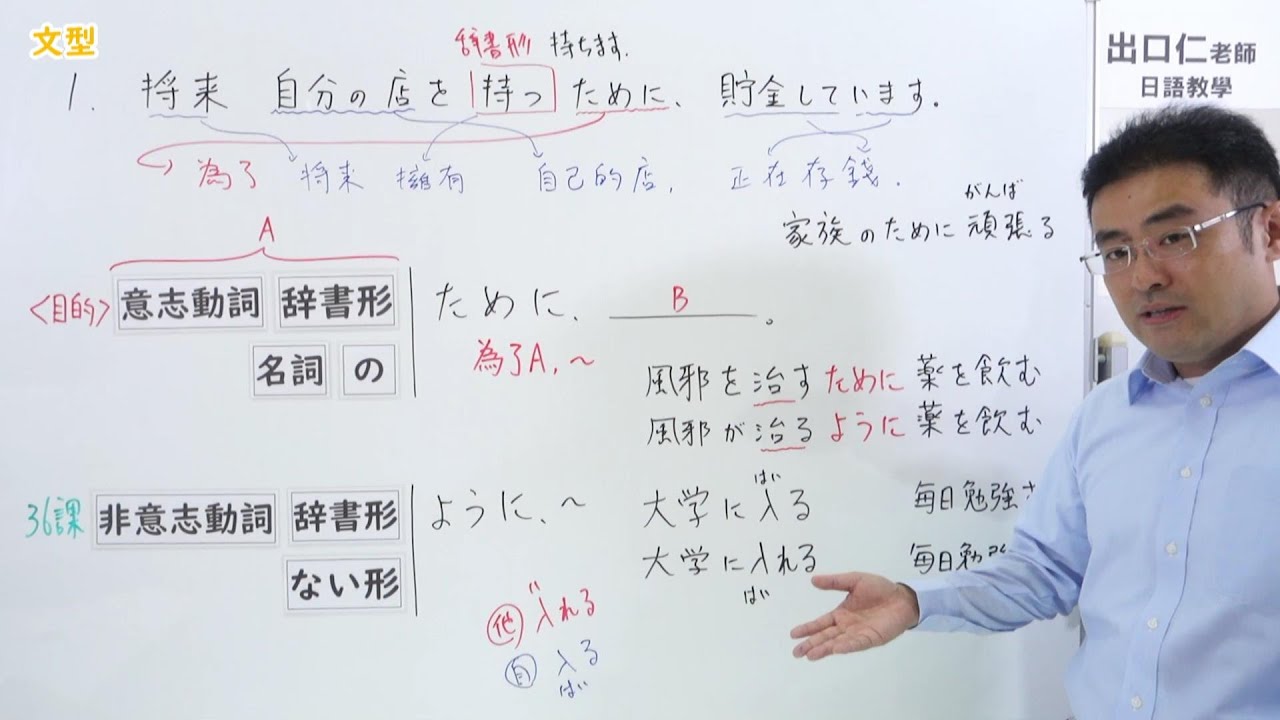 文型
出口仁老師
日語教學
辞書形 持ちます.
1. 将来 自分の店を持つために、貯金しています.
為了 将来 擁有 自己的店, 正在存錢.
がんば
家族のために頑張る
A
<目的> 意志動詞 辞書形 ために、 B 。
名詞 の
為了A,~
風邪を治すために薬を飲む
風邪が治るように薬を飲む
36課 非意志動詞 辞書形 ように、~
ない形
はい
大学に入る 毎日勉強
大学に入れる 毎日勉
はい
い
他 入れる
自 入る
はい